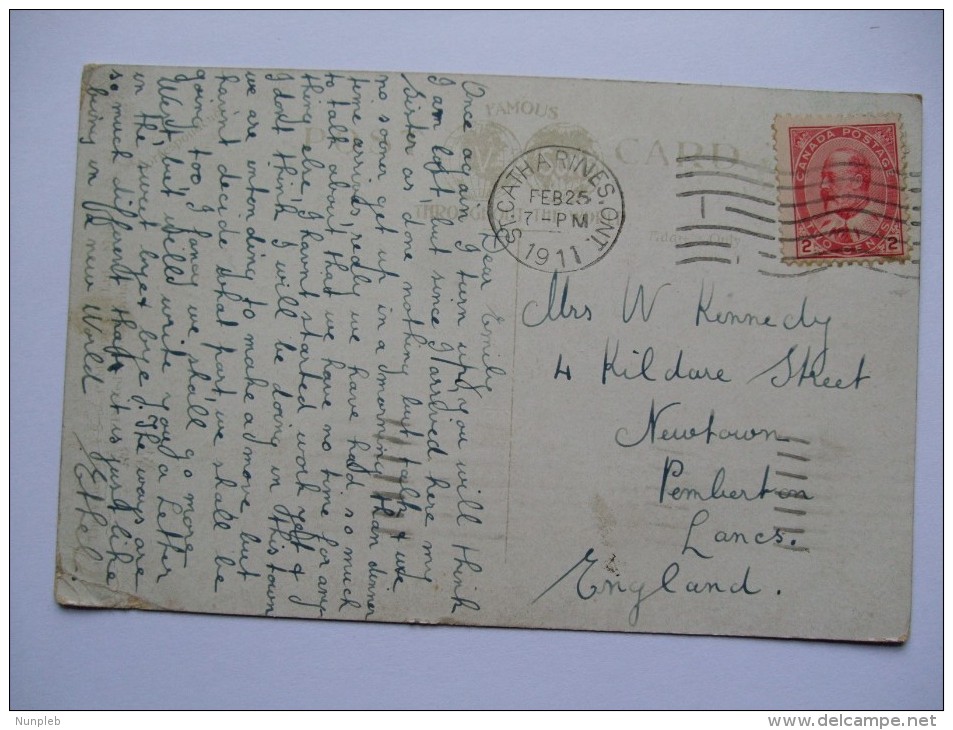 FAMOUS
POST CARD
THROUGHOUT THE WORLD
Address Only
ST. CATHARINES. ONT.
FEB 25
7-PM
1911
CANADA POSTAGE
2 TWO CENTS 2
Dear Emily
Once again I turn up, you will think
I am loft, but since I arrived here my
Sister as done nothing but talk, & we
no sooner get up in a morning than dinner
time arrives, redly we have had so much
to talk about that we have no time for any
thing else, I havnt started work yet &
I dont think I will be doing in this town
we are intending to make a move but
havint decide what part, we shall be
going too, I fancy we shall go more
West, but will write you a Letter
in the sweet bye & bye. The ways are
so much different that it is just like
being in a new World
Ethel.
Mrs W Kennedy
4 Kildare Street
Newtown
Pemberton
Lancs.
England.
Nunpleb
delcampe.net